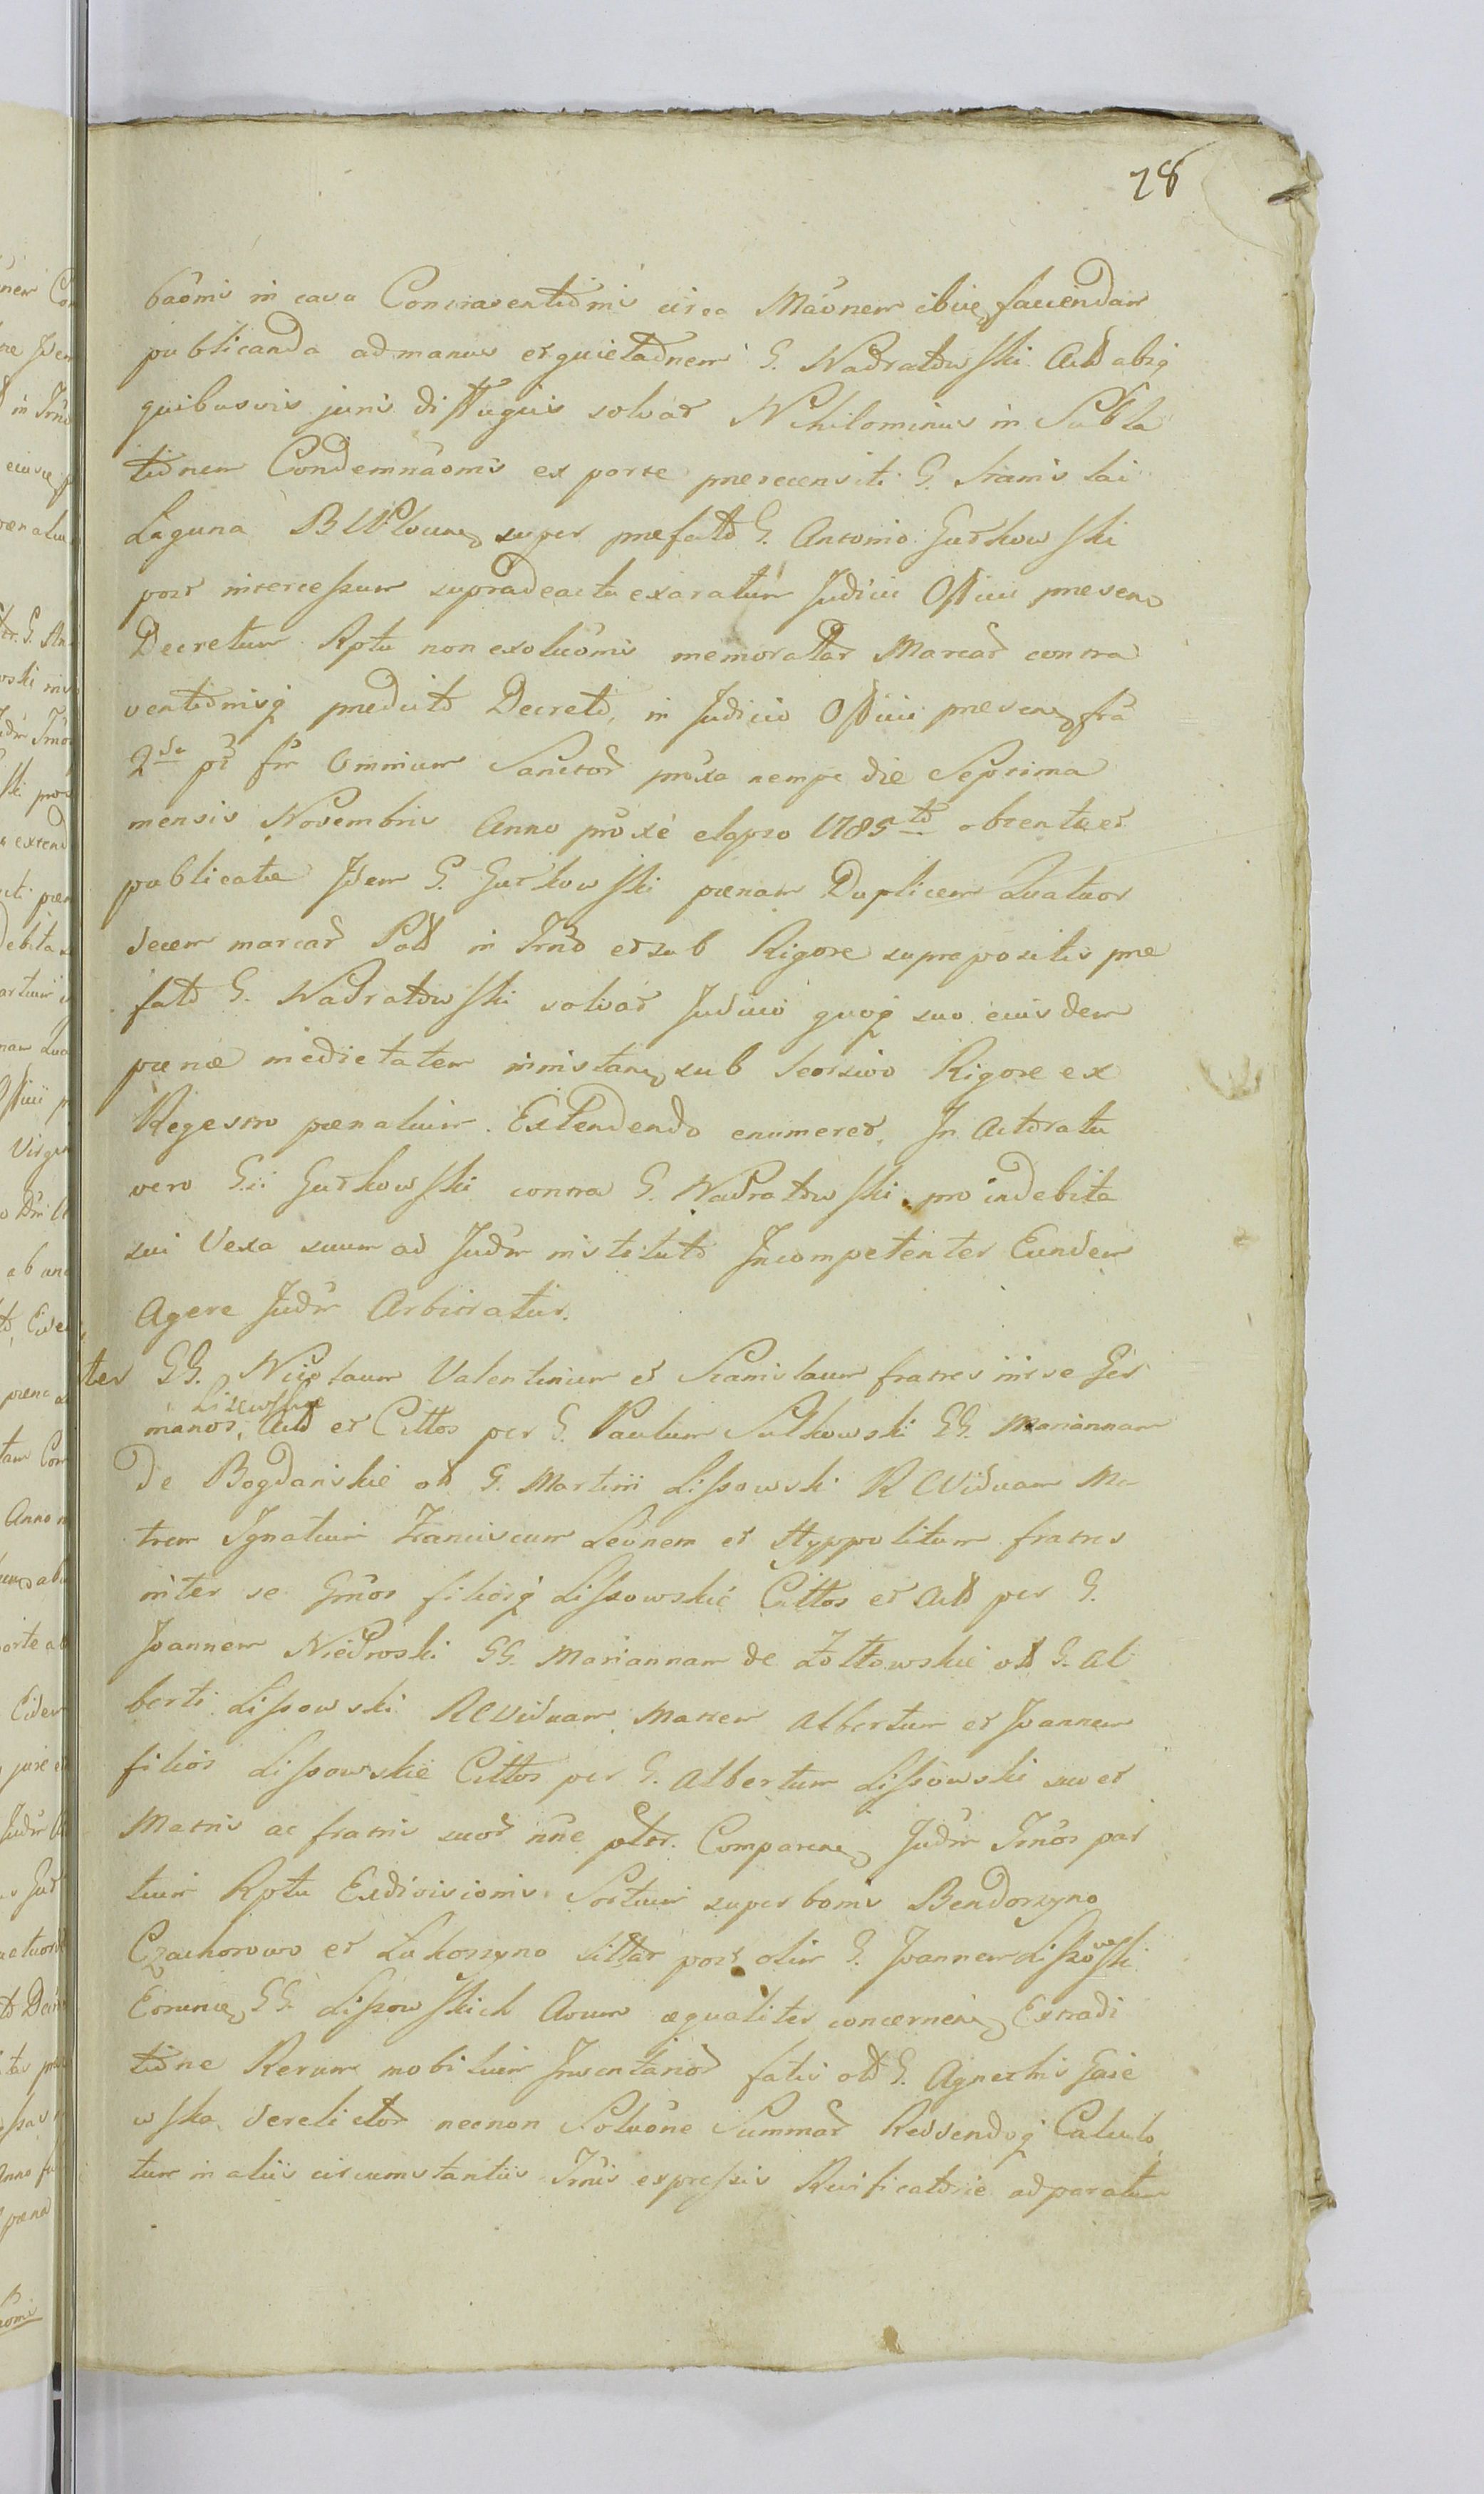 28
baõmis in casu Contraventiõnis circa Mãõnem ibide faciendam
publicanda ad manus et quietaõnem G. Nadratowski Act absq
quibusvis juris diffugiis solvat Nihilominus in Subla
tiõnem Condemnaõmis ex parte prerecensiti G. Stanislai
Laguna super prefato G. Antonio Gutkowski
post intercessum supradeactu exaratum Judicii Offcii presens
Decretum Rptu non exoluõmis memoratar Marcar contra
ventiõnisq predicto Decreto, in Judicio Offcii presen fra
2da pt fm Omnium Sanctor proxa nempe die Septima
mensis Novembris Anno proxe elapso 1785to obtentu et
publicatu Idem G. Gutkowski pœnam Duplicem Quatuor
decem marcar Pol in Trno et sub Rigore suprapositis præ
fato G. Nadratowski solvat Judicio quoq suo eiusdem
pœnæ medietatem instan sub Seorsivo Rigore ex
Regestro pœnalium Extendendo enumeret, In Actoratu
vero G.i Gutkowski contra G. Nadratowski pro indebita
sui Vexa suum ad Judm instituto Incompetenter Eundem
Agere Judm Arbitratur.
ter GG. Nicolaum Valentinum et Stanislaum fratres inse Ger
Lisewskie
manos, Act et Cittos per G. Paulum Sulkowski GG. Mariannam
de Bogdańskie ol G. Martini Lissowski R Viduam Ma-
trem Ignatium Franciscum Leonem et Hyppolitum fratres
inter se Gmos filiosq Lissowskie Cittos et Act per G.
Joannem Niedroski GG. Mariannam de Żołtowskie ol G. Al
berti Lissowski R Viduam Matrem Albertum et Joannem
filios Lissowskie Cittos per G. Albertum Lissowski suo et
Matris ac fratris suor nñe ptor. Comparen Judm Trnos par
tium Rptu Exdivisionis Sortium super bonis Bendorzyno
Czachorowo et Lukoszyno sittar post olim G. Joannem Lissowski
Eorunde GG. Lissowskich Avum æqualiter concernen Extradi
tiõne Rerum mobilium Inventarior fatis ol G. Agnethis Gaie
wska derelictor necnon Soluõne Summar Reddendoq Calculo
tum in aliis circumstantiis Trnis expressis Reificatorie ad paratum